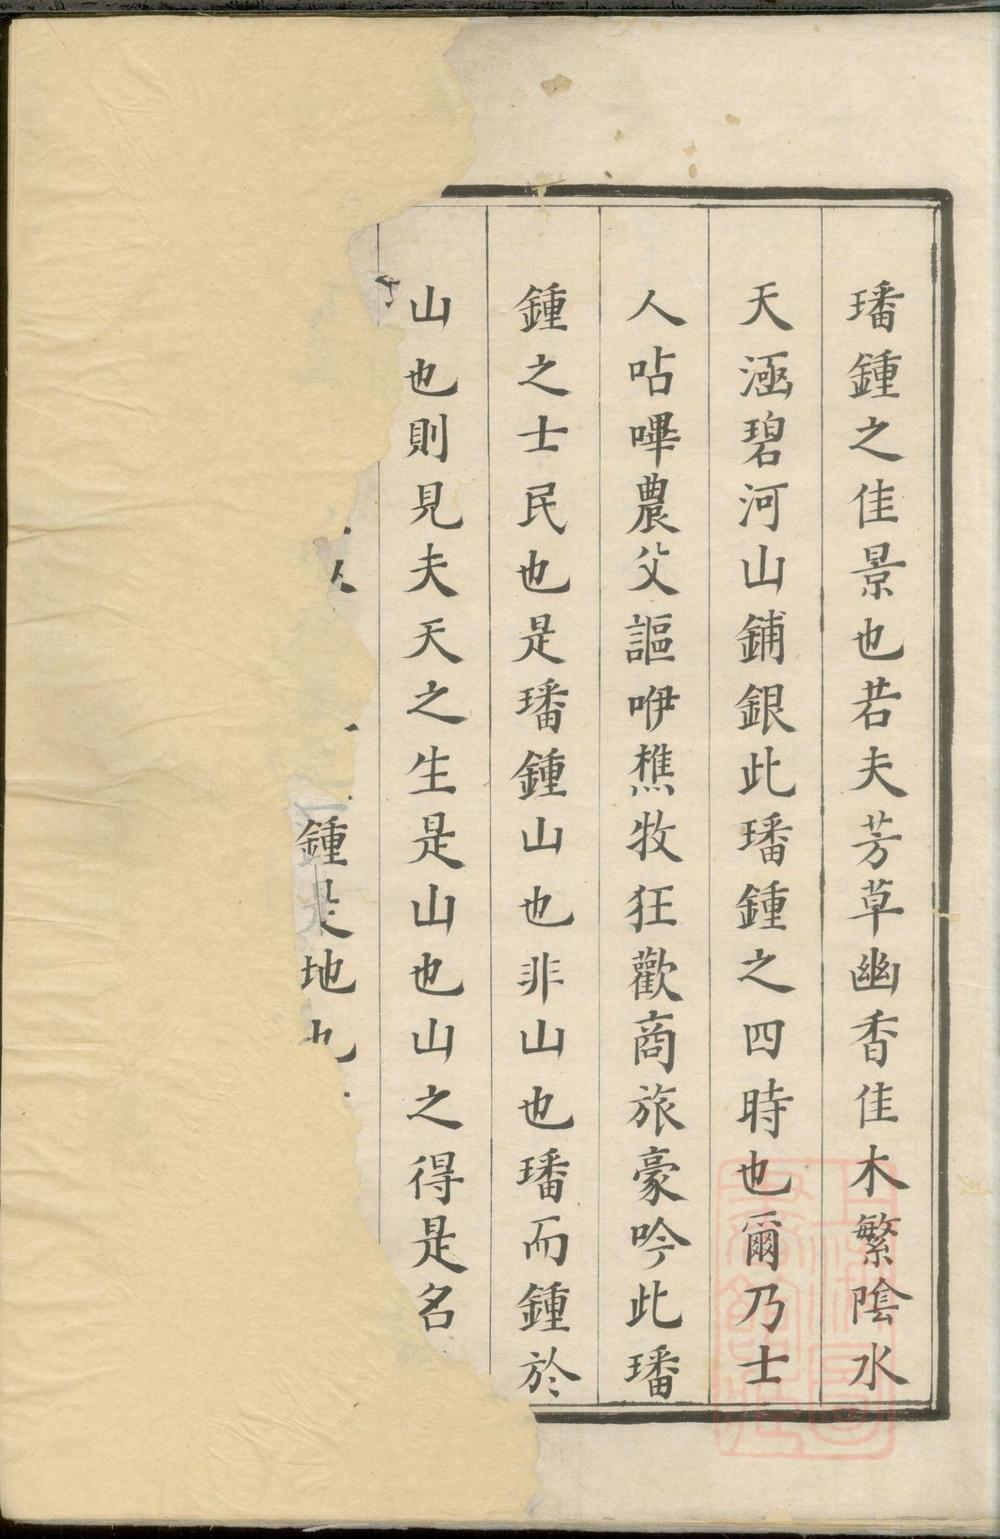 璠鍾之佳景也若夫芳草幽香佳木繁陰水
天涵碧河山鋪銀此璠鍾之四時也爾乃士
人呫嗶農父謳咿樵牧狂歡商旅豪吟此璠
鍾之士民也是璠鍾山也非山也璠而鍾於
山也則見夫天之生是山也山之得是名
鍾是地也